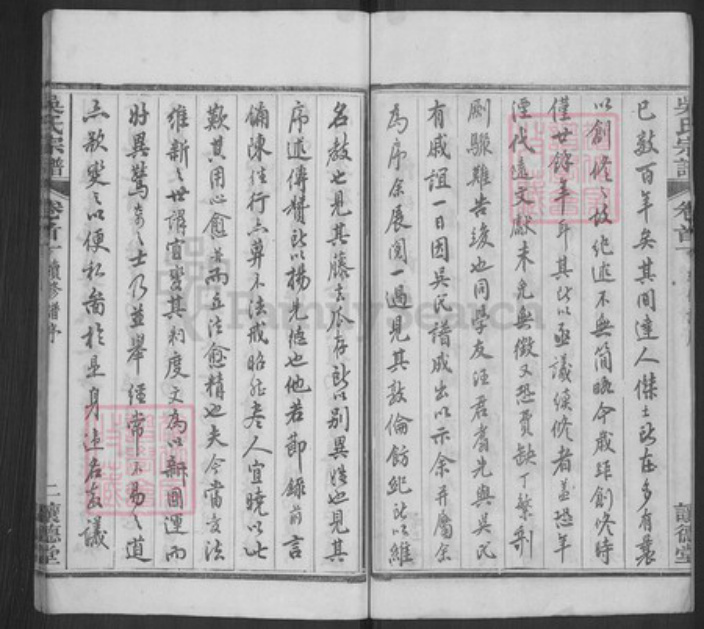 吳氏宗譜
卷首
讓德堂
已數百年矣其間達人傑士所在多有曩
以創修之故紀述不無簡略今歲距創修時
僅廿餘年耳其所以亟議續修者蓋恐年
湮代遠文獻未免無徵又恐費缺丁繁剞
劂驟難告竣也同學友汪君耆先與吳氏
有戚誼一日因吳氏譜成出以示余并屬余
為序余展閱一過見其敦倫飭紀所以維
名教也見其藤去瓜存所以別異姓也見其
序述傳贊所以揚先德也他若節錄前言
備陳往行亦莫不法戒昭然麥人宜曉以此
歎其用心愈並而立法愈精也夫今當變法
維新之世謂宜變其制度文為以新國運而
好異騖奇之士乃並舉經常不易之道
亦欲變之以便私圖於是身遠居家議
吳氏宗譜
卷首
續修譜序
二
讓德堂
FamilySearch